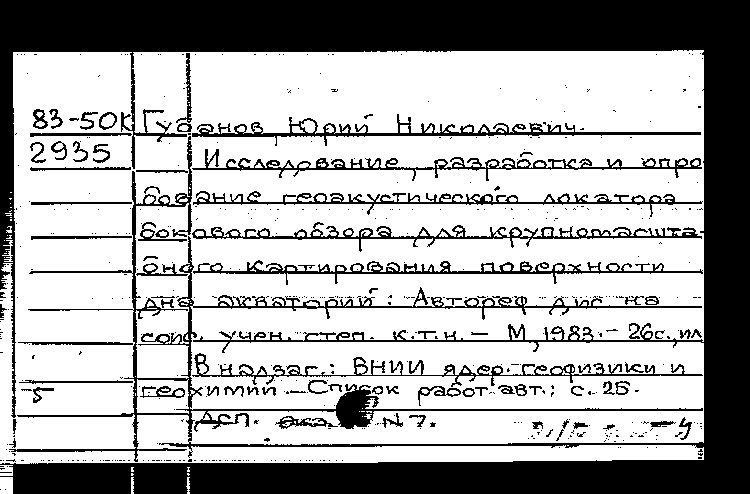 83-50К Губанов Юрий Николаевич.
2935 Исследование, разработка и опро-
бование геоакустического локатора
бокового обзора для крупномасшта-
бного картирования поверхности
дна акваторий : Автореф дис на
соис. учен. степ. к.т.н. – М, 1983. – 26с., ил
В надзаг.: ВНИИ ядер. геофизики и
5 геохимии – Список работ авт.: с. 25.
Дсп. экз. N 7.